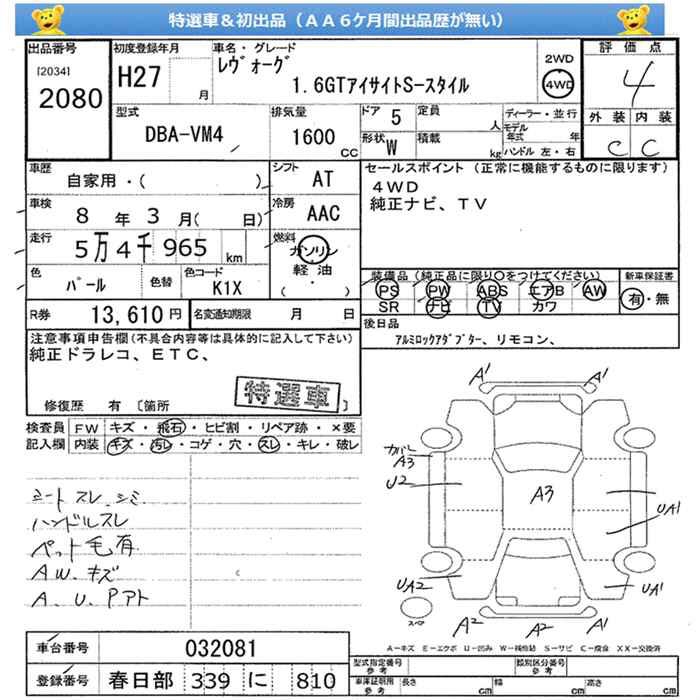 特選車＆初出品（ＡＡ６ケ月間出品歴が無い）
出品番号 [2034] 2080
初度登録年月 H27 月
車名・グレード レヴォーグ 1.6GTアイサイトS-スタイル
2WD 4WD
評価点 4
外装 内装 C C
型式 DBA-VM4
排気量 1600 CC
ドア 5 定員 人
形状 W 積載 kg
ディーラー・並行
モデル年式 年
ハンドル 左・右
車歴 自家用・( )
シフト AT
車検 8 年 3 月( 日)
冷房 AAC
走行 5万4千965 km
燃料 ガソリン 軽油 ( ・ )
色 パール 色替 色コード K1X
R券 13,610円 名変通知期限 月 日
セールスポイント（正常に機能するものに限ります）
４ＷＤ
純正ナビ、ＴＶ
装備品（純正品に限り○をつけてください） 新車保証書
PS PW ABS エアB AW 有・無
SR ナビ TV カワ
後日品
アルミロックアダプター、リモコン、
注意事項申告欄(不具合内容等は具体的に記入して下さい)
純正ドラレコ、ＥＴＣ、
特選車
修復歴 有 〔箇所 〕
検査員記入欄
FW キズ・飛石・ヒビ割・リペア跡・×要
内装 キズ・汚レ・コゲ・穴・スレ・キレ・破レ
シート スレ、シミ
ハンドルスレ
ペット毛有
A W. キズ
A、U、Pアト
A1 A1
カバー A3
U2
A3
UA1
UA2 UA1
スペア
A2 A2 A1
A－キズ E－エクボ U－凹み W－補修跡 S－サビ C－腐食 XX－交換済
車台番号 032081
登録番号 春日部 339 に 810
型式指定番号 参考 類別区分番号 参考
車庫証明用 参考 長さ cm 幅 cm 高さ cm